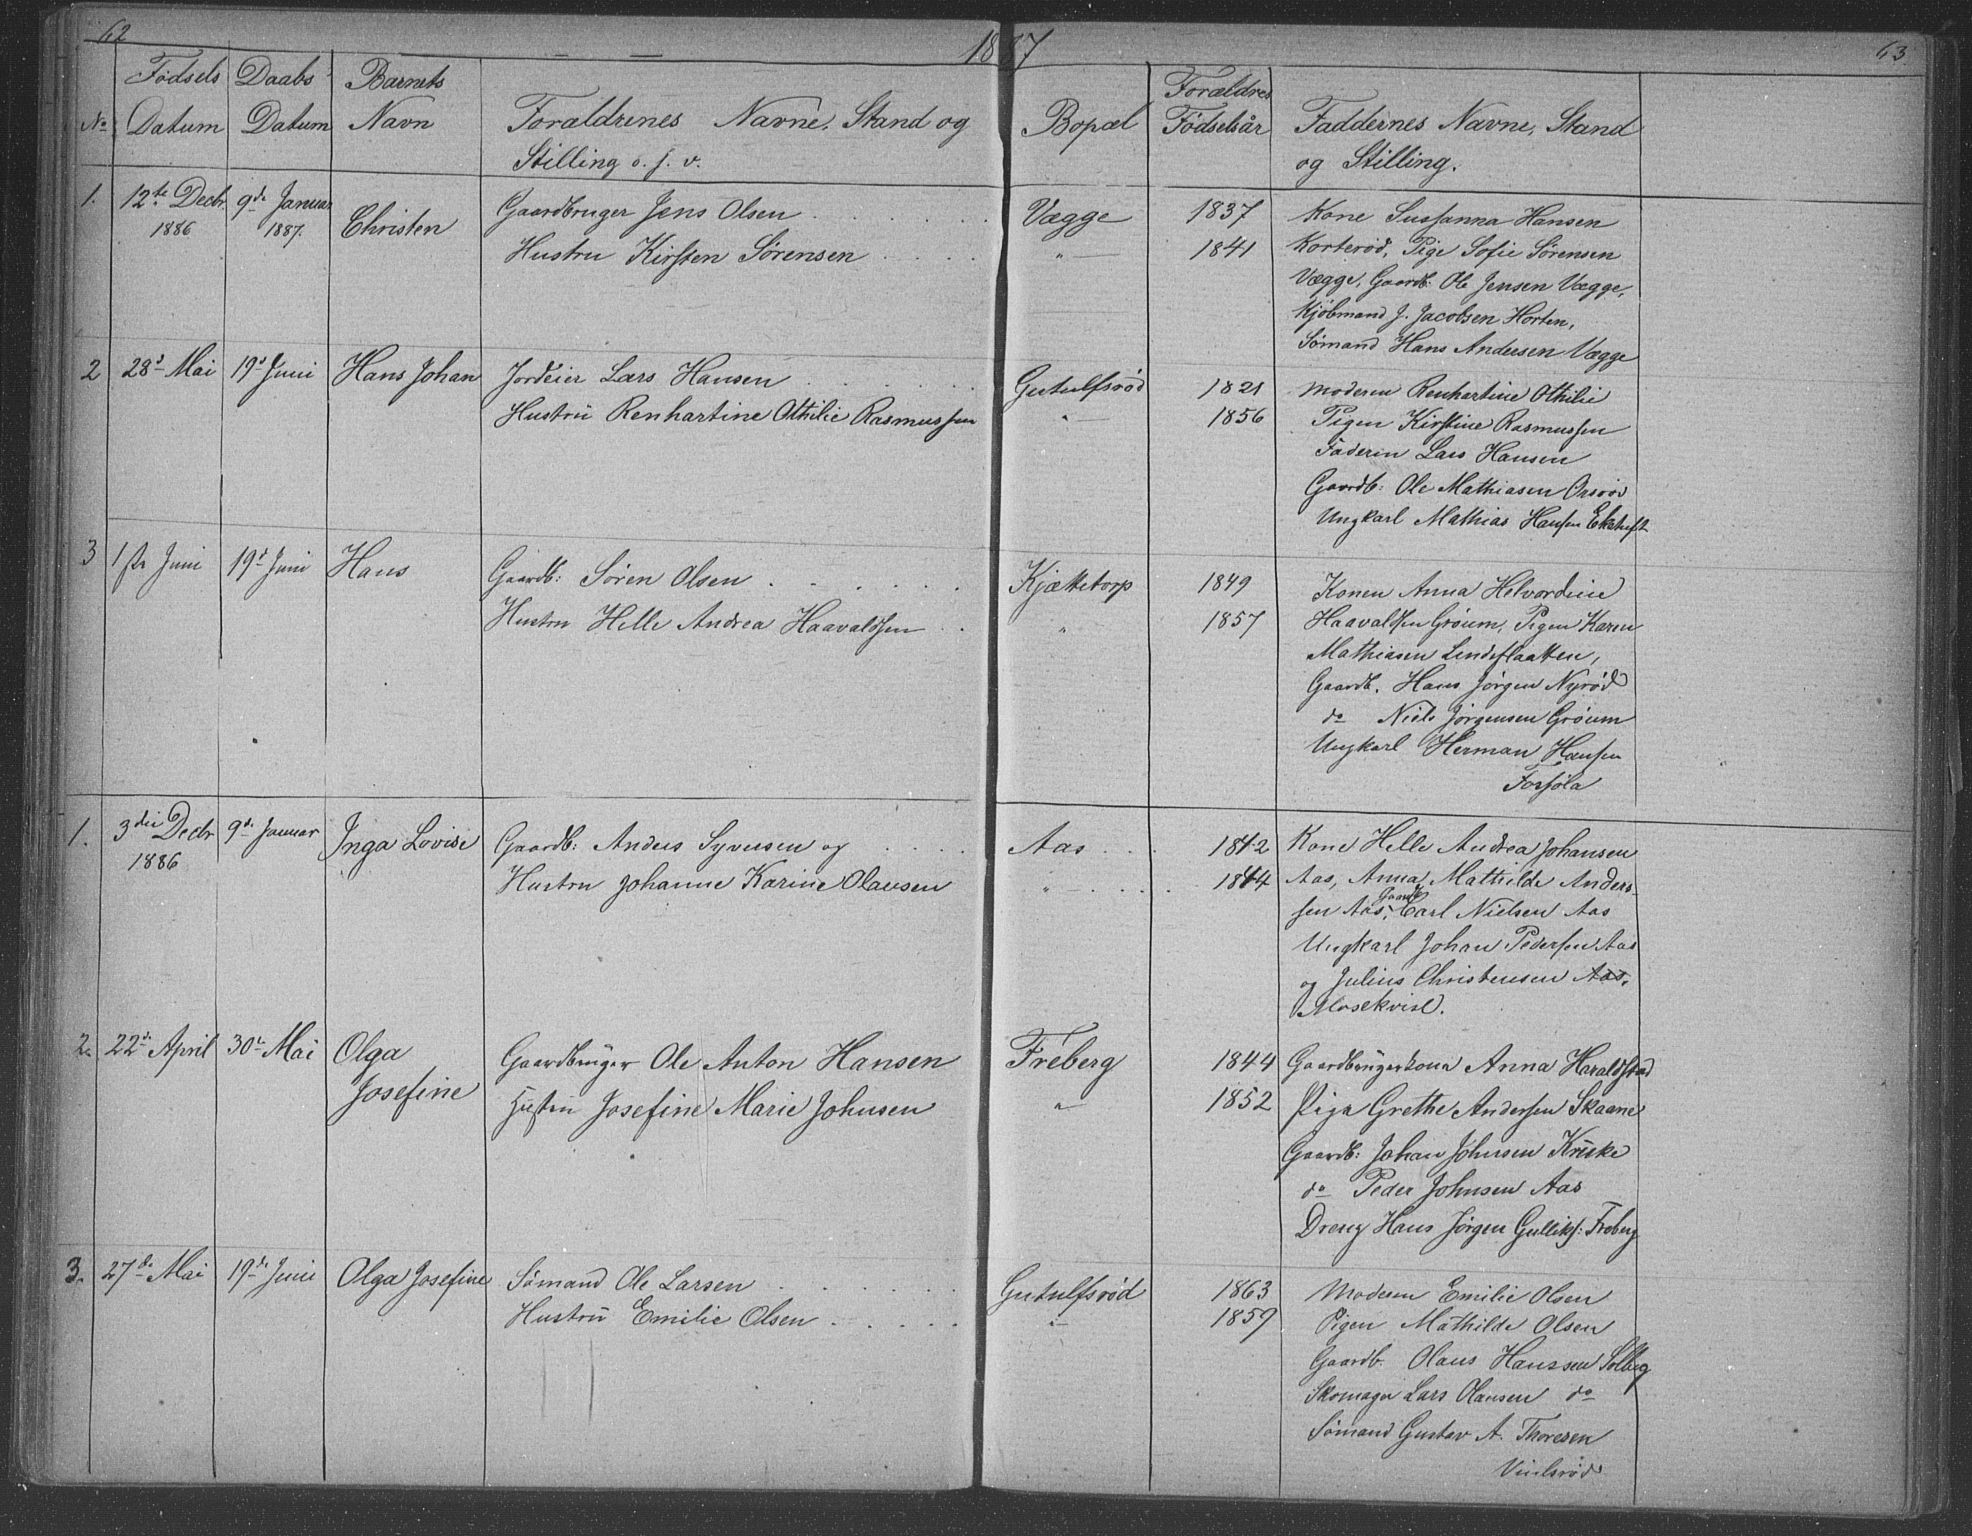 62
1887
63.
No
Fødsels Datum
Daabs Datum
Barnets Navn
Forældrenes Navne, Stand og
Stilling o. s. v.
Bopæl
Forældres Fødselsår
Faddernes Navne, Stand
og Stilling.
1. 12te Decbr 1886 9de Januar 1887. Christen
Gaardbruger Jens Olsen . . . . . Vægge 1837
Hustru Kirsten Sørensen . . . . „ 1841
Kone Sussanna Hansen
Korterød, Pige Sofie Sørensen
Vægge, Gaardb: Ole Jensen Vægge,
Kjøbmand J. Jacobsen Horten,
Sømand Hans Andersen Vægge
2 28d Mai 19d Juni Hans Johan
Jordeier Lars Hansen . . . . . Gutulfsrød 1821
Hustru Renhartine Othilie Rasmussen „ 1856
Moderen Renhartine Othilie
Pigen Kirstine Rasmussen
Faderen Lars Hansen
Gaardb: Ole Mathiasen Orsrød
Ungkarl Mathias Hansen Ekstuft
3 1ste Juni 19d Juni Hans
Gaardb: Søren Olsen . . . . . Kjættetorp 1849
Hustru Helle Andrea Haavaldsen . . „ 1857
Konen Anna Helvardine
Haavaldsen Grøum, Pigen Karen
Mathiasen Lindeflaatten,
Gaardb. Hans Jørgen Nyrød
do Niels Jørgensen Grøum
Ungkarl Herman Hansen
1. 3die Decbr 1886 9de Januar Inga Lovise
Gaardb: Anders Syversen og . . . . Aas . . . 1842
Hustru Johanne Karine Olausen „ . . . . 1844
Kone Helle Andrea Johansen
Aas, Anna Mathilde Anders-
sen Aas, Gaardb Carl Nielsen Aas
Ungkarl Johan Pedersen Aas
og Julius Christensen Aas,
Mosekvist.
2. 22de April 30te Mai Olga Josefine
Gaardbruger Ole Anton Hansen Freberg 1844
Hustru Josefine Marie Johnsen „ 1852
Gaardbrugerkona Anna Haraldstad
Piga Grethe Andersen Skaane
Gaardb: Johan Johnsen Kruke
do Peder Johnsen Aas
Dreng Hans Jørgen Gulliks: Freberg
3. 27de Mai 19de Juni Olga Josefine
Sømand Ole Larsen . . . . . Gutulfsrød 1863
Hustru Emilie Olsen . . . . . „ 1859
Moderen Emilie Olsen
Pigen Mathilde Olsen
Gaardb. Olaus Hanssen Solberg
Skomager Lars Olausen do
Sømand Gustav A. Thoresen